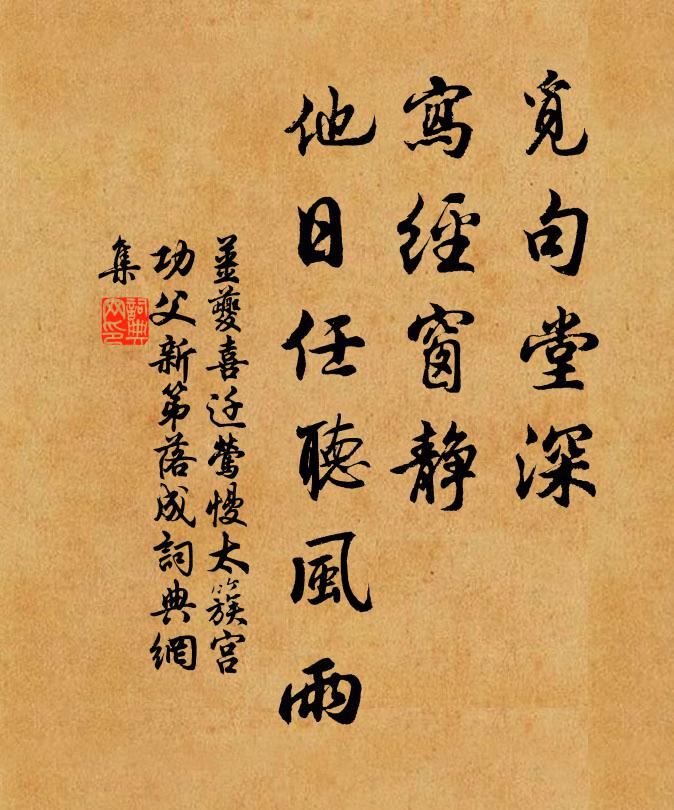 覓句堂深
寫經窗靜
他日任聽風雨
姜夔喜迁鶯慢太簇宮
功父新第落成詞典網
集
詞典
网印